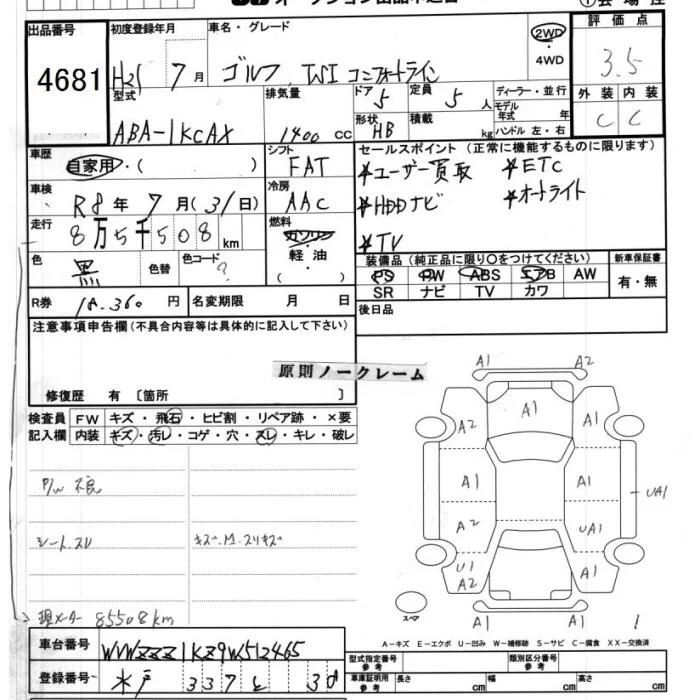 出品番号
4681
初度登録年月
H21 7月
車名・グレード
ゴルフ TSI コンフォートライン
2WD
・
4WD
評価点
3.5
型式
ABA-1KCAX
排気量
1400 cc
ドア
5
形状
HB
定員
5 人
積載
kg
ディーラー・並行
モデル
年式 年
ハンドル 左・右
外装 内装
C C
車歴
自家用・( )
シフト
FAT
セールスポイント(正常に機能するものに限ります)
*ユーザー買取 *ETC
*HDDナビ *オートライト
*TV
車検
R8年 7月(31日)
冷房
AAC
走行
8万5千508km
燃料
ガソリン
・
軽油
( )
色
黒
色替
色コード
?
装備品(純正品に限り○をつけてください)
PS PW ABS エアB AW
SR ナビ TV カワ
新車保証書
有・無
R券 18,360円
名変期限 月 日
後日品
注意事項申告欄(不具合内容等は具体的に記入して下さい)
原則ノークレーム
修復歴 有〔箇所 〕
検査員 FW キズ・飛石・ヒビ割・リペア跡・×要
記入欄 内装 キズ・汚レ・コゲ・穴・スレ・キレ・破レ
P/W 不良
シートスレ
キズ.M.スリキズ
現メーター 85508km
A1 A2
A1
A2 A1
A1 A1
UA1
A2 UA1
U1
A2
A1
A1 A1
スペア
A-キズ E-エクボ U-凹み W-補修跡 S-サビ C-腐食 XX-交換済
車台番号
WVWZZZ1KZ9W512465
登録番号
水戸 337 と 38
型式指定番号
参考
類別区分番号
参考
車庫証明用
参考
長さ cm
幅 cm
高さ cm